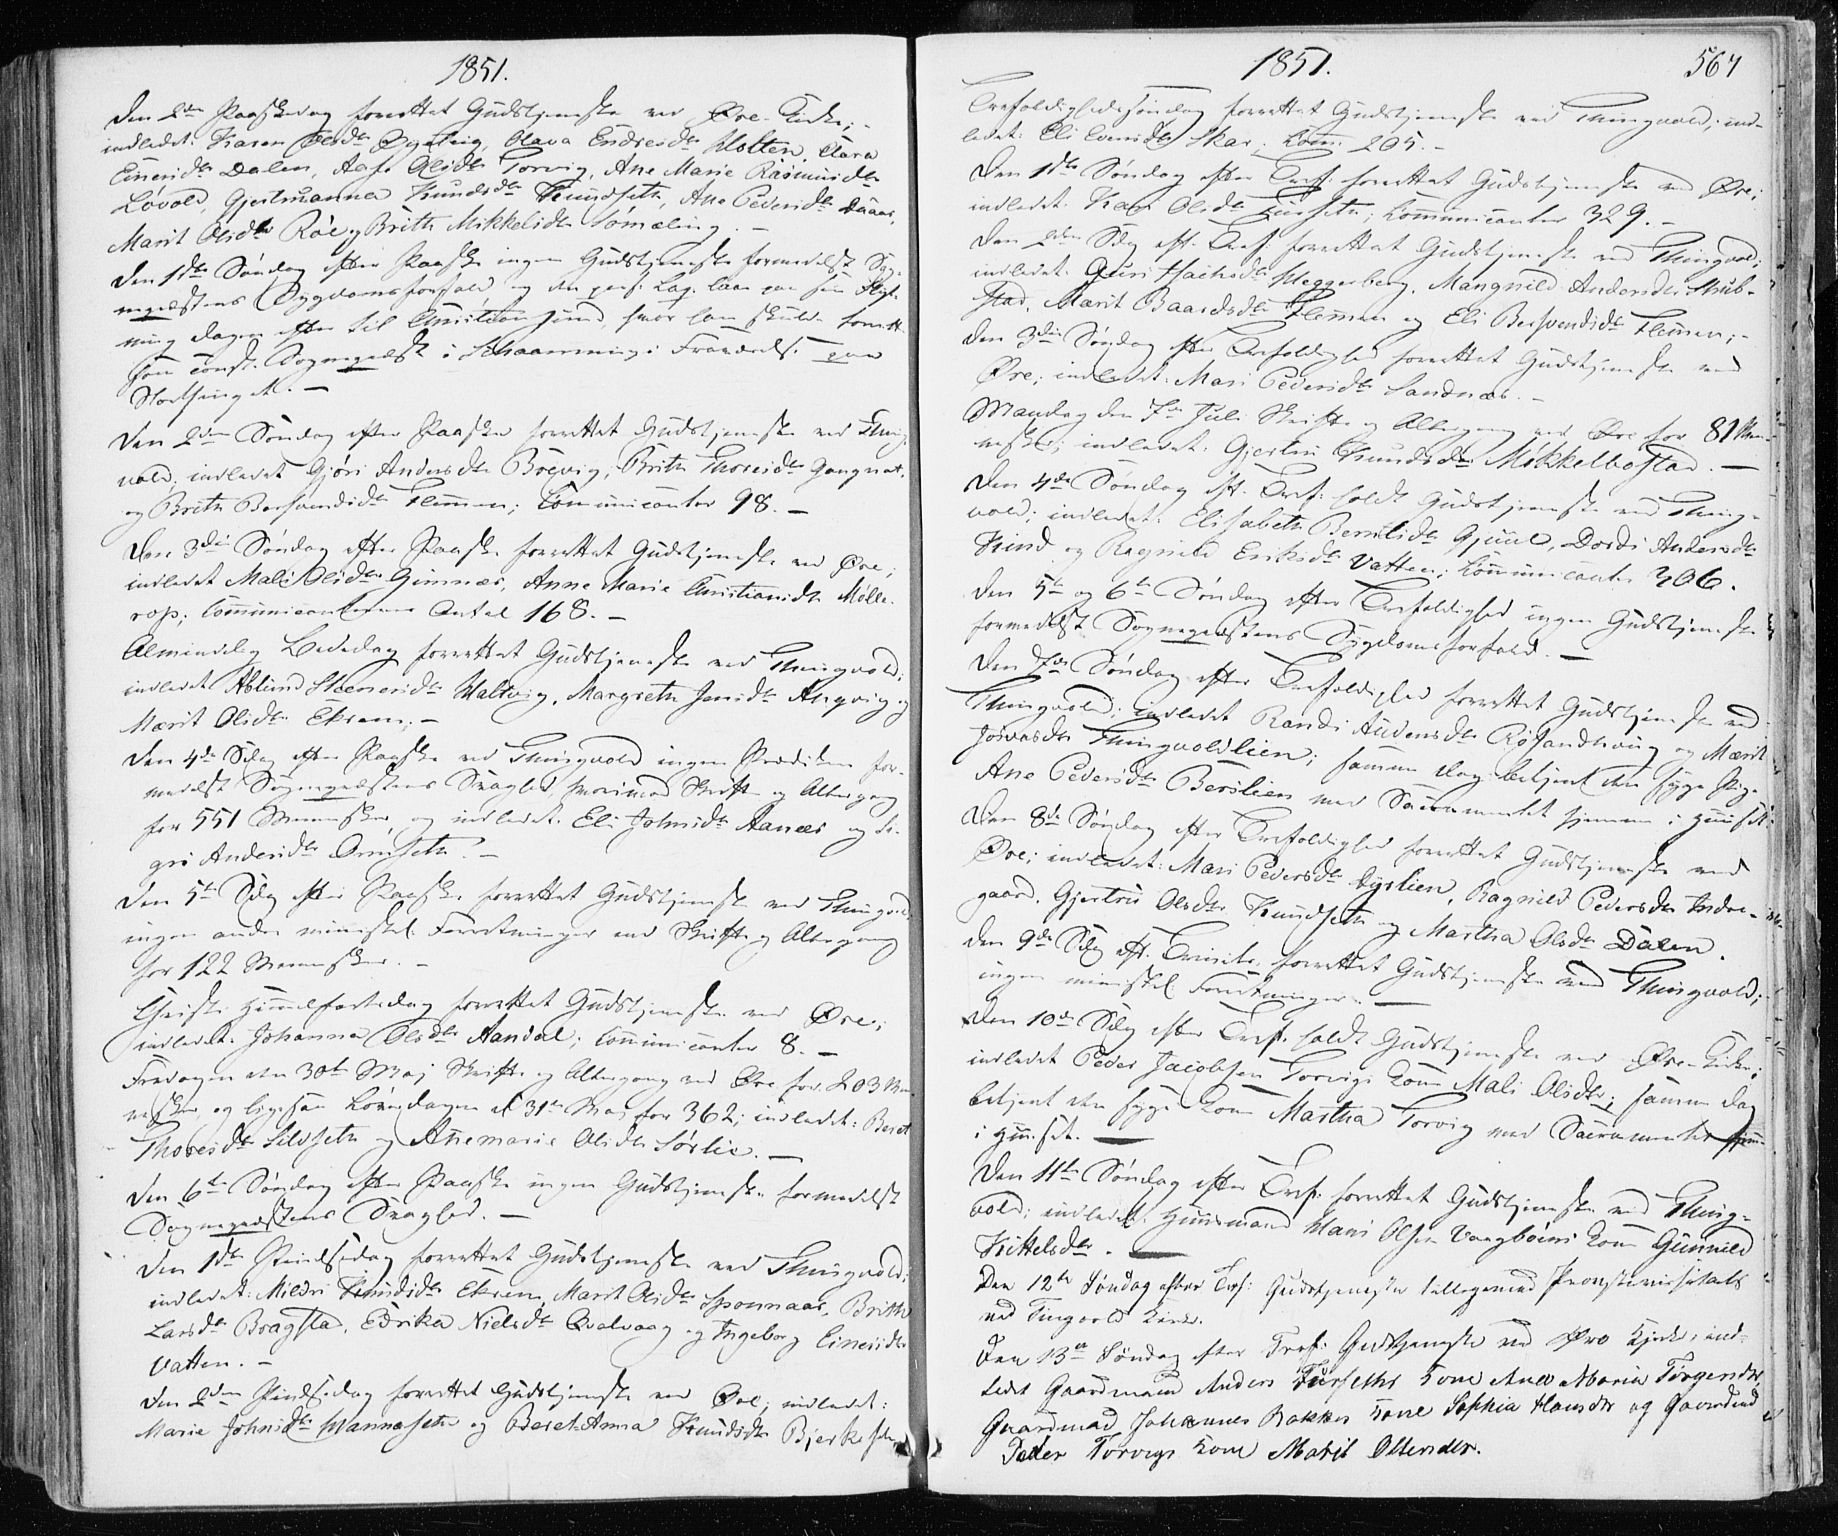 1851.
den 2den Paaskedag forrettet Gudstjeneste ved Øre-Kirke;
indledet: Karen Olsdtr Bysteig, Olava Endresdtr Holten, Clara
Einersdtr Dalen, Olsdtr Torvig, Ane Marie Rasmusdtr
Løvold, Gjertruanna Knudsdtr Knudseth, Ane Pedersdtr
Marit Olsdtr Røe og Brith Mikkelsdtr Sømæling. -
den 1ste Søndag efter Paaske ingen Gudstjeneste formedelst Sog-
nepræstens Sygdomsforfald og
dagen efter til Christiansund, hvor han skulde
som const. Sognepræst i paa
Storthinget. -
den 2den Søndag efter Paaske forrettet Gudstjeneste ved Thing-
vold, indledet Gjøri Andersdtr Bøevig, Brith Thoresdtr Gangnat,
og Brith Bersvendsdtr Flemmen; Communicanter 98. -
den 3die Søndag efter Paaske forrettet Gudstjeneste ved Øre;
indledet Mali Olsdtr Gimnæs, Anne Marie Christiansdtr Mølle-
rop; Communicanternes Antal 168. -
Almindelig Bededag forrettet Gudstjeneste ved Thingvold;
indledet Ablund Steenersdtr Waltvig, Margreth Jensdtr Angvig og
Marit Olsdtr Ekrem; -
den 4de Sdg efter Paaske ved Thingvold ingen Prædiken for-
medelst Sognepræstens Svaghed, hvorimod Skrifte og Altergang
for 551 Mennesker, og indledet Eli Johnsdtr Aanees og Si-
gri Andersdtr Ormseth. -
den 5te Sdg efter Paaske forrettet Gudstjeneste ved Thingvold
ingen andre ministeriel Forretninger end Skrifte og Altergang
for 122 Mennesker. -
Christi Himmelfartsdag forrettet Gudstjeneste ved Øre;
indledet Johanna Olsdtr Aandal; Communicanter 8. -
Fredagen den 30te Maj Skrifte og Altergang ved Øre for 203 Men-
nesker, og ligesaa Løverdagen d 31te Maj for 362; indledet: Beret
Thoresdtr Silseth og Anemarie Olsdtr Sørlie. -
den 6te Søndag efter Paaske ingen Gudstjeneste formedelst
Sognepræstens Svaghed. -
den 1ste Pindsedag forrettet Gudstjeneste ved Thingvold;
indledet: Mildri Knudsdtr Ekrem, Marit Olsdtr Sponnaas, Brith
Larsdtr Bragstad, Edrika Nielsdtr Qvalvaag og Ingeborg Einersdtr
Vatten. -
den 2den Pindsedag forrettet Gudstjeneste ved Øre; indledet:
Marie Johnsdtr Mannæseth og Beret Anna Knudsdtr Bjerkeseth
1851. 567
Trefoldighedssøndag forrettet Gudstjeneste ved Thingvold; ind-
ledet: Eli Evensdtr Skar; Com: 205. -
den 1ste Søndag efter Tref: forrettet Gudstjeneste ved Øre;
indledet: Kari Olsdtr Furseth; Communicanter 329. -
den 2den Sdg eft. Tref: forrettet Gudstjeneste ved Thingvold;
indledet: Guri Meggerberg, Mangnild Andersdtr Skub-
stad, Marit Baardsdtr Flemmen og Eli Bersvendsdtr Flemmen; -
den 3die Søndag efter Trefoldighed forrettet Gudstjeneste ved
Øre; indledet: Mari Pedersdtr Sandnæs. -
Mandag den 7de Juli Skrifte og Altergang ved Øre for 81 Men-
nesker, indledet: Gjertru Knudsdtr Mikkelbostad. -
den 4de Søndag eft. Tref: holdt Gudstjeneste ved Thing-
vold; indledet: Elisabeth Berntsdtr Gjuul, Dordi Andersdtr
og Ragnild Eriksdtr Vatten; Communicanter 306.
den 5te og 6te Søndag efter Trefoldighed ingen Gudstjeneste
formedelst Sognepræstens Sygdomsforfald. -
den 7de Søndag efter Trefoldighed forrettet Gudstjeneste ved
Thingvold; indledet Randi Audensdtr Røsandhaug og Marit
Jonasdtr Thingvoldlien; samme Dag betjent den syge Pige
Ane Pedersdtr Berslien med Sacramentet hjemme i Huuset.
den 8de Søndag efter Trefoldighed forrettet Gudstjeneste ved
Øre; indledet: Mari Pedersdtr Øyslien, Ragnild Pedersdtr Indre-
gaard, Gjertru Olsdtr Knudseth og Martha Olsdtr Dalen.
den 9de Sdg eft. Trinit: forrettet Gudstjeneste ved Thingvold;
ingen ministriel Forretninger. -
den 10de Sdg efter Tref: holdt Gudstjeneste ved Øre-Kirke;
indledet Peder Jacobsen Torvigs Kone Mali Olsdtr; samme Dag
betjent den syge Kone Martha Torvig med Sacramentet
i Huuset. -
den 11te Søndag efter Tref: forrettet Gudstjeneste ved Thing-
vold; indledet: Huusmand Hans Olsen Vaagbøens Kone Gunnild
Kittelsdtr. -
Den 12te Søndag efter Tref: Gudstjeneste tilligemed Provstevisitats
ved Tingvold Kirke.
Den 13de Søndag efter Tref: Gudstjeneste ved Øre Kjerke, ind-
ledet Gaardmand Anders Furseths Kone Ane Maria Torgersdtr,
Gaardmand Johannes Bakkes Kone Sophia Hansdtr og Gaardmd
Peder Torvigs Kone Marit Ottersdtr.